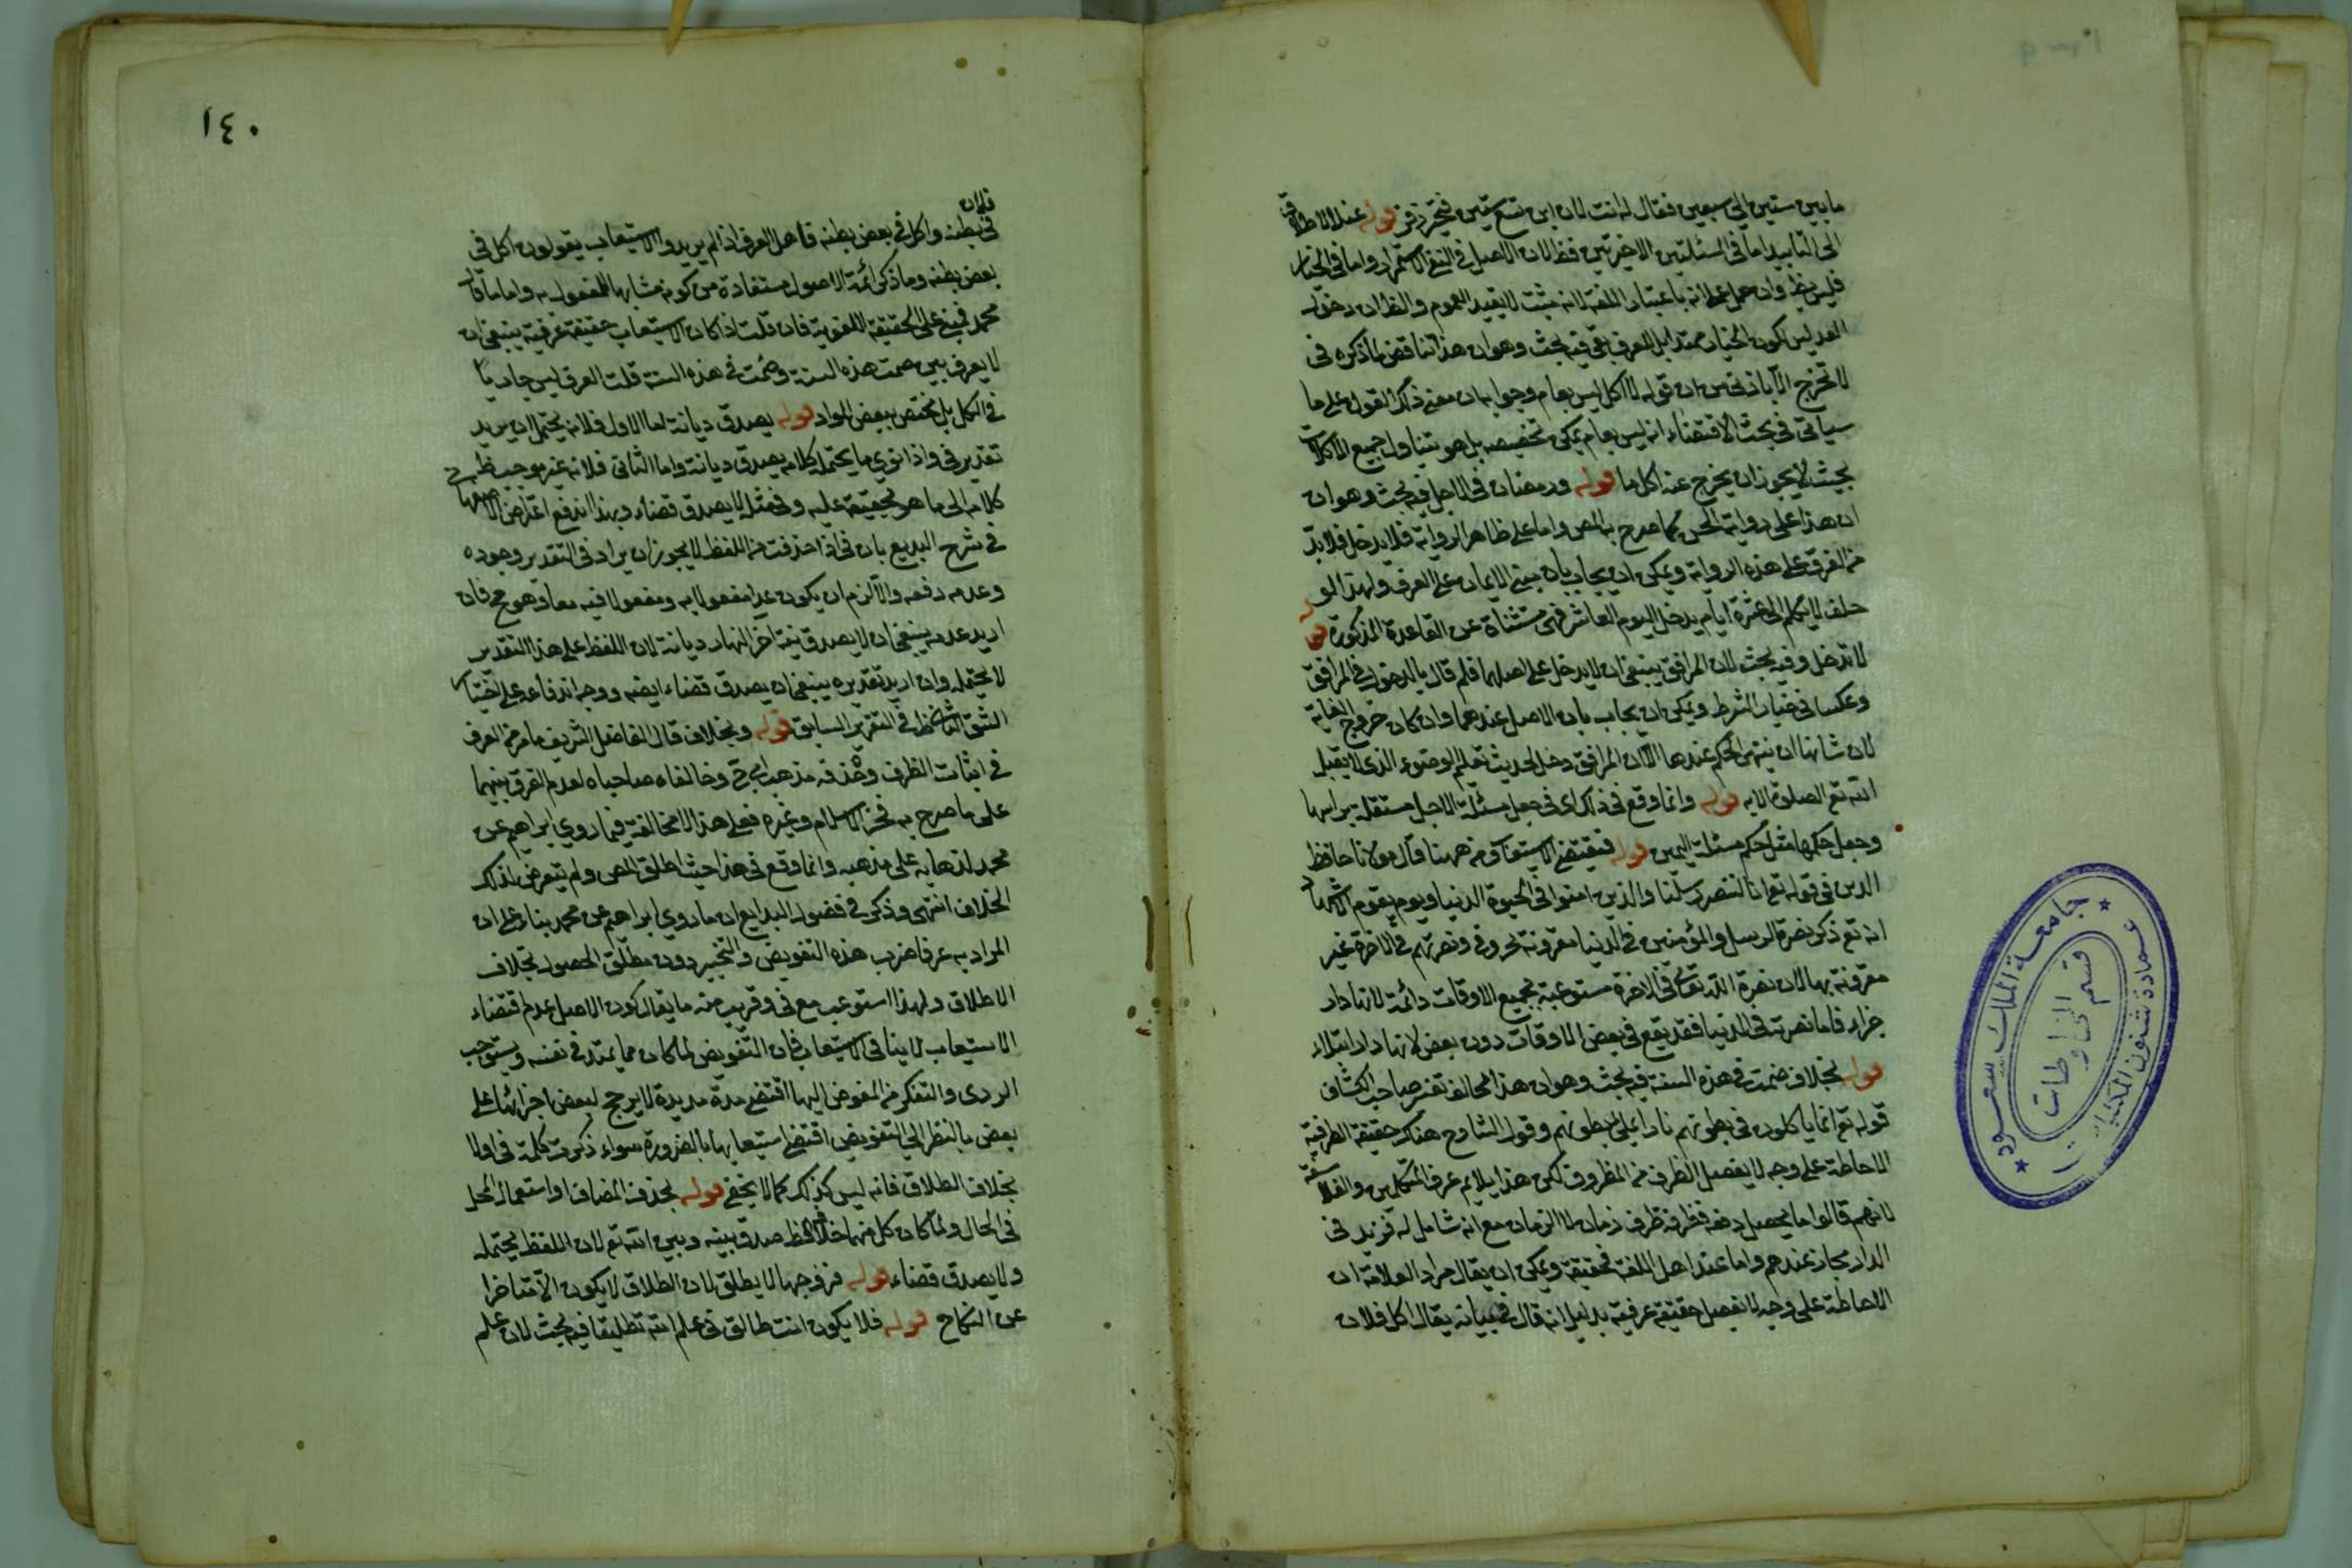 ما بين ستين الى سبعين فقال له انت لان ابن تسع ستين فتحير زفر قوله عند الاطلاق
الى التأبيد اما في المسئلتين الاخيرتين فظ لان الاصل في النفي الاستمرار واما في الخيار
وان عمل انه باعتبار اللغة لانه مثبت لا يفيد العموم والظ ان دخول
الغد ليس لكون الخيار ممتدا بل للعرف بقي فيه بحث وهو ان هذا تناقض لما ذكره في
لا تخرج الا باذني من ان قوله لا اكل ليس بعام وجوابه ان معنى ذلك القول على ما
سيأتي في بحث الاقتضاء انه ليس بعام يمكن تخصيصه بل هو يتناول جميع الاكلات
بحيث لا يجوز ان يخرج عنه اكل ما قوله ورمضان في الاجل فيه بحث وهو ان
ان هذا على رواية الحسن كما صرح به المص واما على ظاهر الرواية فلا يدخل فلا بد
من الفرق على هذه الرواية ويمكن ان يجاب بان مبنى الايمان على العرف ولهذا لو
حلف لا يكلم الى عشرة ايام يدخل اليوم العاشر فهي مستثناة عن القاعدة المذكورة قوله
لا تدخل وفيه بحث لان المرافق ينبغي ان لا يدخل على اصلهما فلم قال بالدخول في المرافق
وعكسا في خيار الشرط ويمكن ان يجاب بان الاصل عندهما وان كان خروج الغاية
لان شانها ان ينتهي الحكم عندها الا ان المرافق دخل لحديث تعليم الوضوء الذي لا يقبل
الله تع الصلوة الا به قوله وانما وقع في ذلك اي في جعل مسئلة الاجل مستقلة برأسها
وجعل حكمها مثل حكم مسئلة اليمين قوله فيقتضي الاستيعاب من ههنا قال مولانا حافظ
الدين في قوله تع انا لننصر رسلنا والذين امنوا في الحيوة الدنيا ويوم يقوم الاشهاد
انه تع ذكر نصرة الرسل والمؤمنين في الدنيا مقرونة بحرف في ونصرتهم في الاخرة غير
مقرونة بها لان نصرة الله تعالى في الاخرة مستوعبة بجميع الاوقات دائمة لانها دار
جزاء فاما نصرته في الدنيا فقد يقع في بعض الاوقات دون بعض لانها دار ابتلاء
قوله بخلاف صمت في هذه السنة فيه بحث وهو ان هذا مخالف تفسير صاحب الكشاف
قوله تع انما ياكلون في بطونهم نارا على بطونهم وقول الشارح هناك حقيقة الظرفية
الاحاطة على وجه لا يفصل الظرف من المظروف لكن هذا يلايم عرف المتكلمين والفلاسفة
لانهم قالوا ما يحصل دفعة فظرفه ظرف زمان لا الزمان مع انه شامل له فزيد في
الدار مجاز عندهم واما عند اهل اللغة فحقيقة ويمكن ان يقال مراد العلامة ان
الاحاطة على وجه لا يفصل حقيقة عرفية بدليل انه قال في بيانه يقال اكل فلان
١٤٠
فلان
في بطنه واكل في بعض بطنه فاهل العرف اذا لم يريدوا الاستيعاب يقولون اكل في
بعض بطنه وما ذكر ائمة الاصول مستفادة من كونه مشابها للمفعول به واما ما قال
محمد فمبني على الحقيقة اللغوية فان قلت اذا كان الاستيعاب حقيقة عرفية ينبغي ان
لا يعرف بين صمت هذه السنة وصمت في هذه السنة قلت العرف ليس جاريا
في الكل بل مختص ببعض المواد قوله يصدق ديانة اما الاول فلانه يحتمل ان يريد
تقدير في واذا نوى ما يحتمله كلامه يصدق ديانة واما الثاني فلانه غير موجب
كلامه الى ما هو تخفيف عليه وفي مثله لا يصدق قضاء وبهذا اندفع اعتراض
في شرح البديع بان في اذا حذفت من اللفظ لا يجوز ان يراد في التقدير وجوده
وعدمه دفعة والا لزم ان يكون غدا مفعولا به ومفعولا فيه معا وهو مح فان
اريد عدمه ينبغي ان لا يصدق نية اخر النهار ديانة لان اللفظ على هذا التقدير
لا يحتمله وان اريد تقديره ينبغي ان يصدق قضاء ايضه ووجه اندفاعه على اختيار
الشق الثاني ظ في التقرير السابق قوله وبخلاف قال الفاضل الشريف ما مر من الفرق
في اثبات الظرف وحذفه مذهب ابي ح وخالفاه صاحباه لعدم الفرق بينهما
على ما صرح به فخر الاسلام وغيره فعلى هذا لا مخالفة فيما روى ابراهيم عن
محمد لذهابه على مذهبه وانما وقع في هذا حيث اطلق المص ولم يتعرض لذلك
الخلاف انتهى وذكر في فصول البدايع ان ما روى ابراهيم عن محمد بناء على ان
المراد به عرفا ضرب هذه التفويض والتخيير دون مطلق الحصول بخلاف
الاطلاق ولهذا استوعب مع في وقريب منه ما يقال كون الاصل عدم اقتضاء
الاستيعاب لا ينافي الاستيعاب فان التفويض لما كان مما يمتد في نفسه ويستوجب
الروى والتفكر من المفوض اليها اقتضى مدة مديدة لا يرجح لبعض اجزائها على
بعض بالنظر الى التفويض اقتضى استيعابها بالضرورة سواء ذكرت كلمة في او لا
بخلاف الطلاق فانه ليس كذلك كما لا يخفى قوله بحذف المضاف او استعمال المحل
في الحال ولما كان كل منهما خلاف الظ صدق بينه وبين الله تع لان اللفظ يحتمله
ولا يصدق قضاء قوله فزوجها لا يطلق لان الطلاق لا يكون الا متاخرا
عن النكاح قوله فلا يكون انت طالق في علم الله تطليقا فيه بحث لان علم
جامعة الملك سعود
عمادة شئون المكتبات
قسم المخطوطات